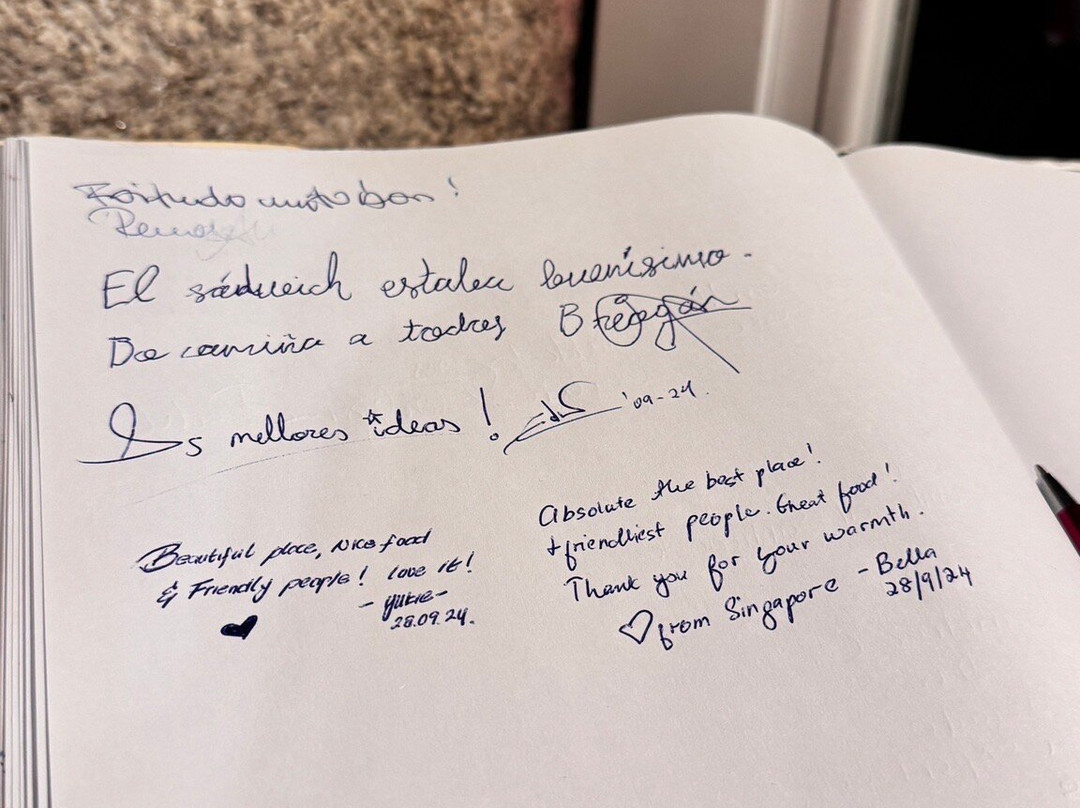 Foi tudo moito bon!
El sádueich estalea buenísimo.
Bo camiña a todos
Os mellores ideas! '09-24.
Beautiful place, Nice food
& Friendly people! love it!
-yukie-
28.09.24.
Absolute the best place!
+friendliest people. Great food!
Thank you for your warmth.
♡from Singapore -Bella
28/9/24